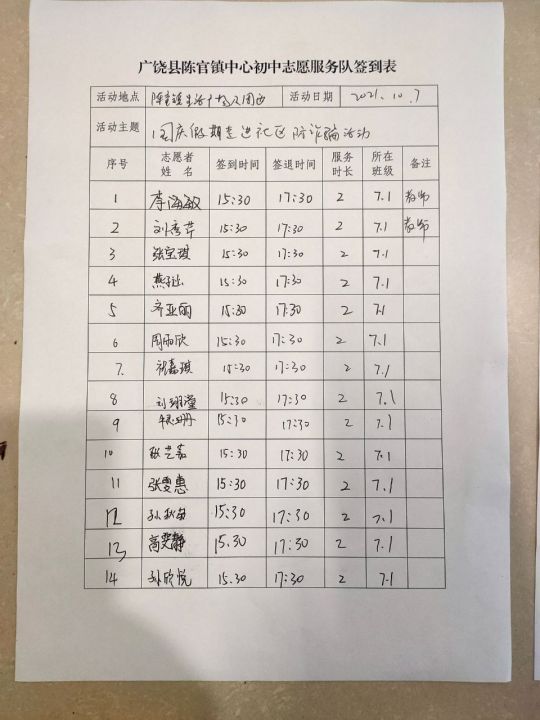 广饶县陈官镇中心初中志愿服务队签到表
活动地点 陈官镇生活广场及周边 活动日期 2021.10.7
活动主题 国庆假期走进社区防诈骗活动
序号 志愿者姓名 签到时间 签退时间 服务时长 所在班级 备注
1 李海敏 15:30 17:30 2 7.1 教师
2 刘秀芹 15:30 17:30 2 7.1 教师
3 张宝琪 15:30 17:30 2 7.1
4 15:30 17:30 2 7.1
5 齐亚丽 15:30 17:30 2 7.1
6 周雨欣 15:30 17:30 2 7.1
7. 祝嘉琪 15:30 17:30 2 7.1
8 15:30 17:30 2 7.1
9 15:30 17:30 2 7.1
10 张艺茹 15:30 17:30 2 7.1
11 张雯惠 15:30 17:30 2 7.1
12 15:30 17:30 2 7.1
13 高雯静 15.30 17:30 2 7.1
14 孙欣悦 15.30 17:30 2 7.1